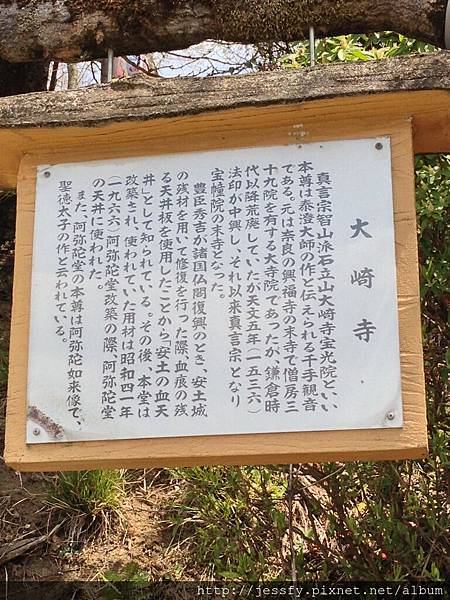 大崎寺
真言宗智山派石立山大崎寺宝光院といい、
本尊は泰澄大師の作と伝えられる千手観音
である。元は奈良の興福寺の末寺で僧房三
十九院を有する大寺院であったが、鎌倉時
代以降荒廃していたが天文五年(一五三六)
法印が中興し、それ以来真言宗となり
宝幢院の末寺となった。
豊臣秀吉が諸国仏閣復興のとき、安土城
の残材を用いて修復を行った際、血痕の残
る天井板を使用したことから「安土の血天
井」として知られている。その後、本堂は
改築され、使われていた用材は昭和四一年
(一九六六)阿弥陀堂改築の際、阿弥陀堂
の天井に使われた。
また、阿弥陀堂の本尊は阿弥陀如来像で、
聖徳太子の作と云われている。
http://jessfy.pixnet.net/album